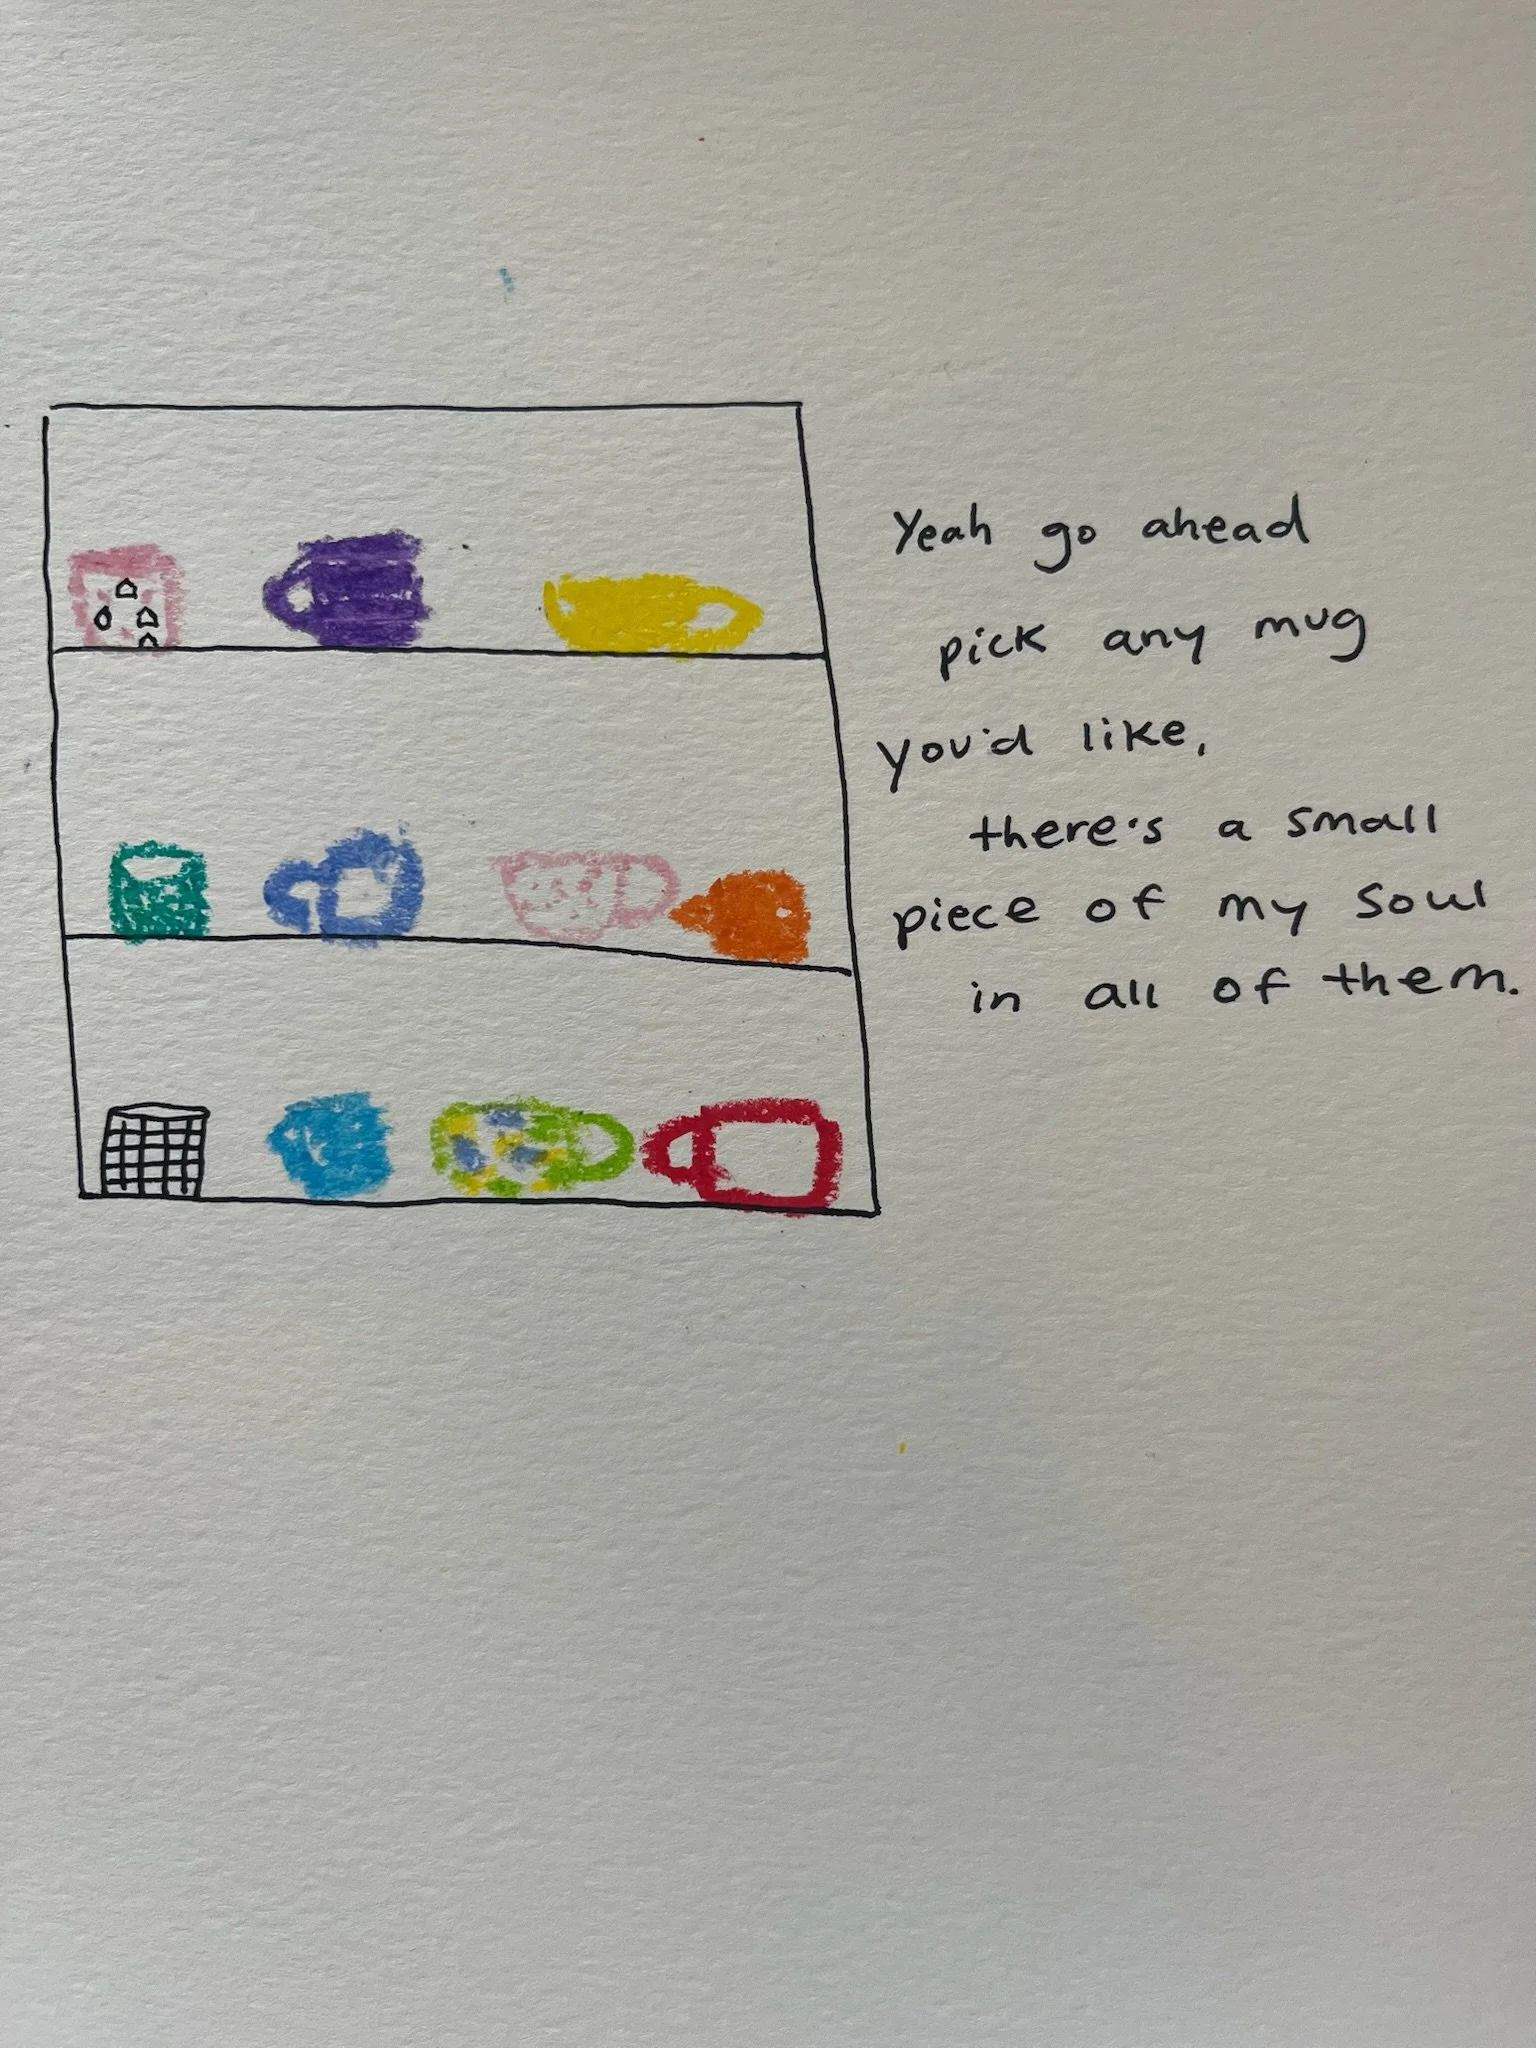 Yeah go ahead
pick any mug
you'd like,
there's a small
piece of my soul
in all of them.